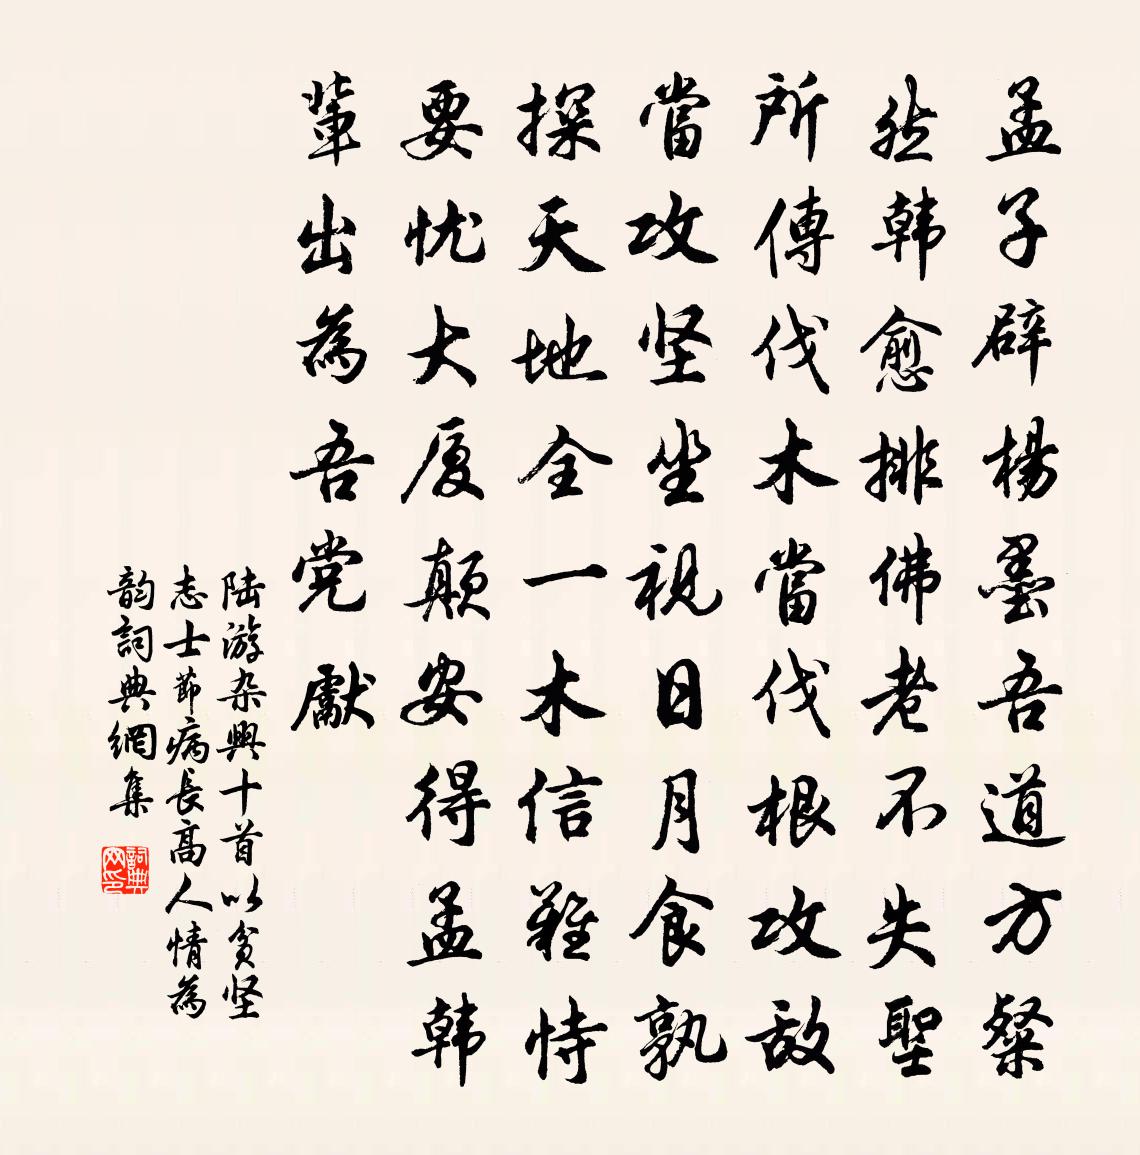 孟子辟楊墨吾道方粲
然韩愈排佛老不失聖
所傳伐木當伐根攻敌
當攻坚坐視日月食孰
探天地全一木信難恃
要忧大厦颠安得孟韩
輩出為吾党獻
陆游杂興十首以貧坚
志士節病長高人情為
韵詞典網集
詞典
网印